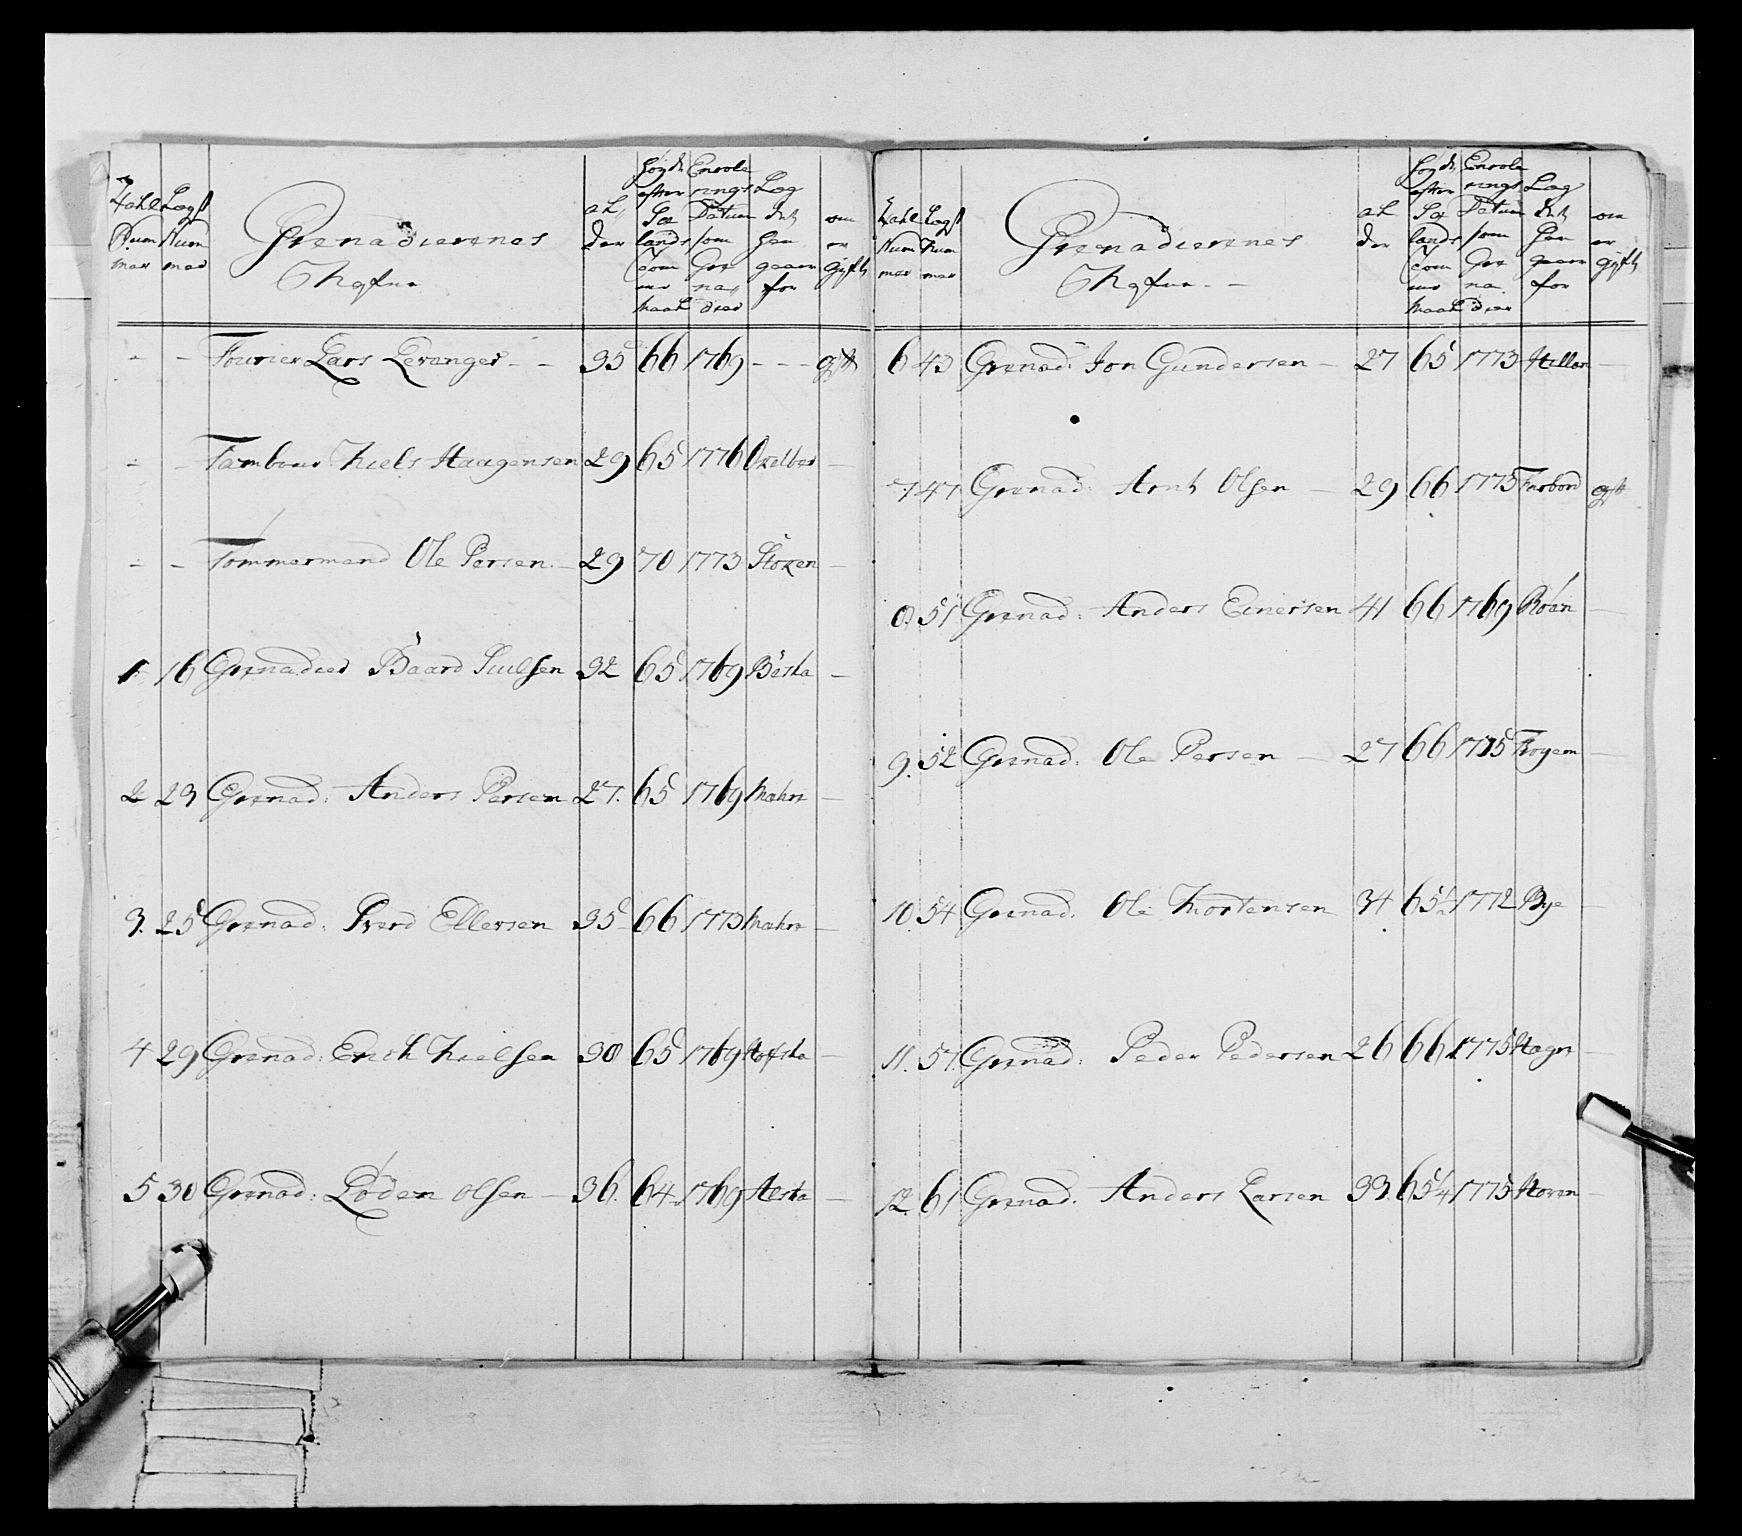 Zahl Num mer
Lægs Num mer
Grenadierernes Nafne
al der
Høyde efter Sælands Com me Maal
Enrole rings Datum som Gre na dier
Læg det han gaaer for
om er gift
- - Fourier Lars Levanger - - 35 66 1769 - - - gift
- - Tambour Niels Haagensen 29 65 1776 -
- - Tømmermand Ole Persen - 29 70 1773 Støren -
1 16 Grenadeer Baard Siulsen 32 65 1769 -
2 23 Grenad: Anders Persen 27. 65 1769 -
3. 25 Grenad: Ellersen 35 66 1773 -
4 29 Grenad: Erich Nielsen 30 65 1769 Hofsta -
5 30 Grenad: Løden Olsen - 36. 64 1769 -
Zahl Num mer
Lægs Num mer
Grenadierernes Nafne - -
al der
Høyde efter Sælands Com me Maal
Enrole rings Datum som Gre na dier
Læg det han gaaer for
om er gift
6 43 Grenad: Jon Gundersen - 27 65 1773 -
7. 47 Grenad: Arnt Olsen - 29 66 1775 gift
8. 51 Grenad: Anders Einersen 41 66 1769 -
9. 52 Grenad: Ole Persen - 27 66 1775 -
10. 54 Grenad: Ole Mortensen 34 65 1/2 1772 Bye -
11. 57. Grenad: Peder Pedersen 26 66 1775 -
12. 61 Grenad: Anders Larsen 33. 65 1/4 1775 -